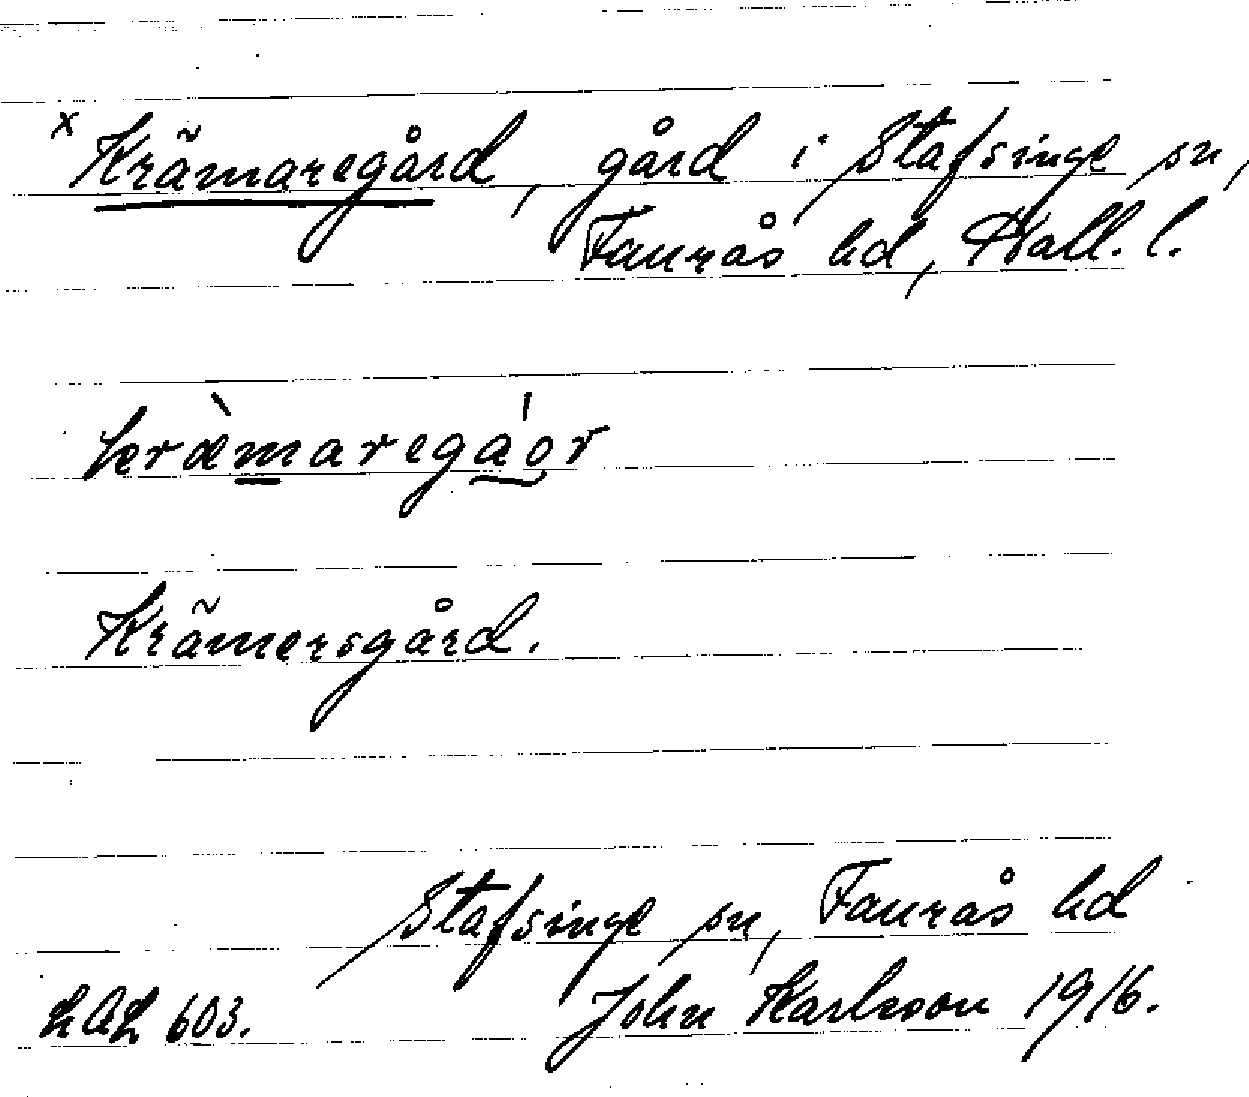 x Krämaregård, gård i Stafsinge sn,
Faurås hd, Hall. l.
kræ̀maregáor
Krämersgård.
Stafsinge sn, Faurås hd
LAL 603. John Karlsson 1916.